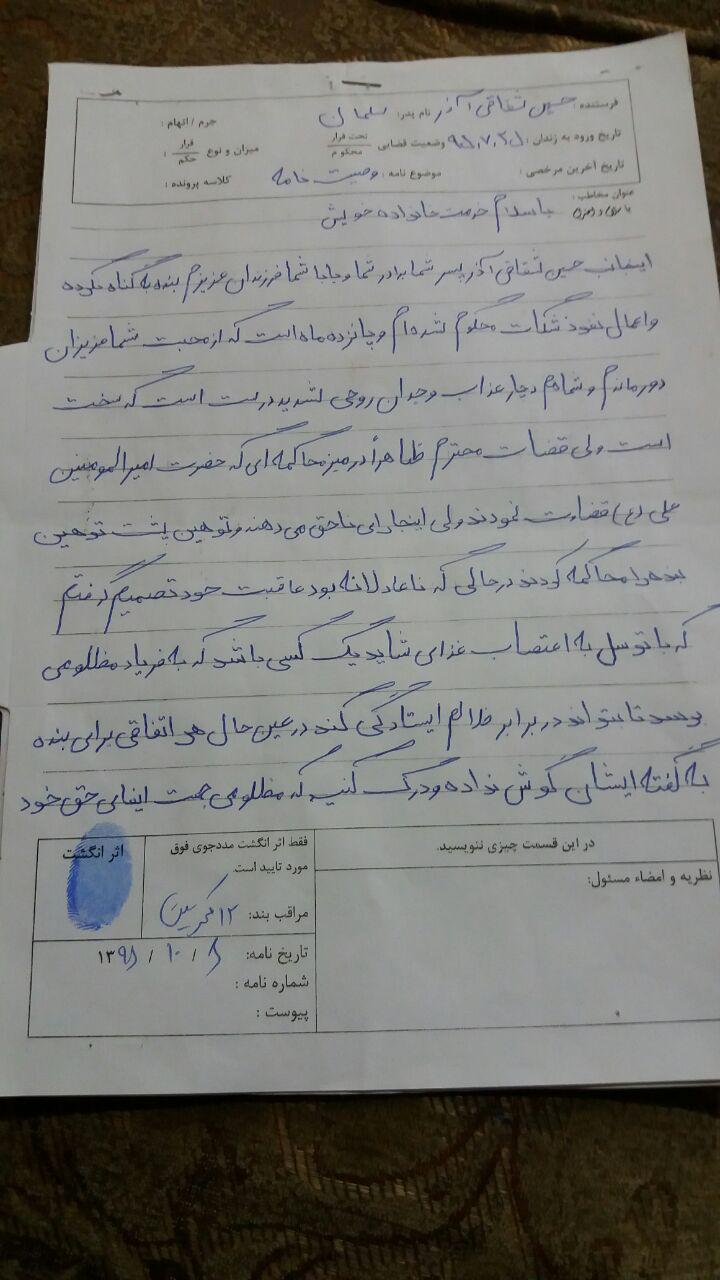 فرستنده: حسین شقاقی آذر نام پدر: سلمان جرم / اتهام:
تاریخ ورود به زندان: وضعیت قضایی تحت قرار / محکوم میزان و نوع قرار / حکم:
تاریخ آخرین مرخصی: موضوع نامه: وصیت نامه کلاسه پرونده:
عنوان مخاطب:
با سلام و احترام با سلام خدمت خانواده خویش
اینجانب حسین شقاقی آذر پسر شما برادر شما و بابا شما فرزندان عزیزم بنده به گناه نکرده
و اعمال نفوذ شکات محکوم شده ام و پانزده ماه است که از محبت شما عزیزان
دور ماندم و شما هم دچار عذاب وجدان روحی شدید درست است که سخت
است ولی قضات محترم ظاهراً در میز محاکمه ای که حضرت امیرالمومنین
علی (ع) قضاوت نمودند ولی اینجا رای ناحق می دهند و توهین پشت توهین
بنده را محاکمه کردند در حالی که ناعادلانه بود عاقبت خود تصمیم گرفتم
که با توسل به اعتصاب غذای شاید یک کسی باشد که به فریاد مظلومی
برسد تا بتواند در برابر ظالم ایستادگی کند در عین حال هر اتفاقی برای بنده
به گفته ایشان گوش نداده و درک کنید که مظلومی جهت ایفای حق خود
در این قسمت چیزی ننویسید.
نظریه و امضاء مسئول:
فقط اثر انگشت مددجوی فوق
مورد تایید است.
اثر انگشت
مراقب بند: ۱۲
تاریخ نامه: ۸ / ۱۰ / ۱۳۹۸
شماره نامه:
پیوست: